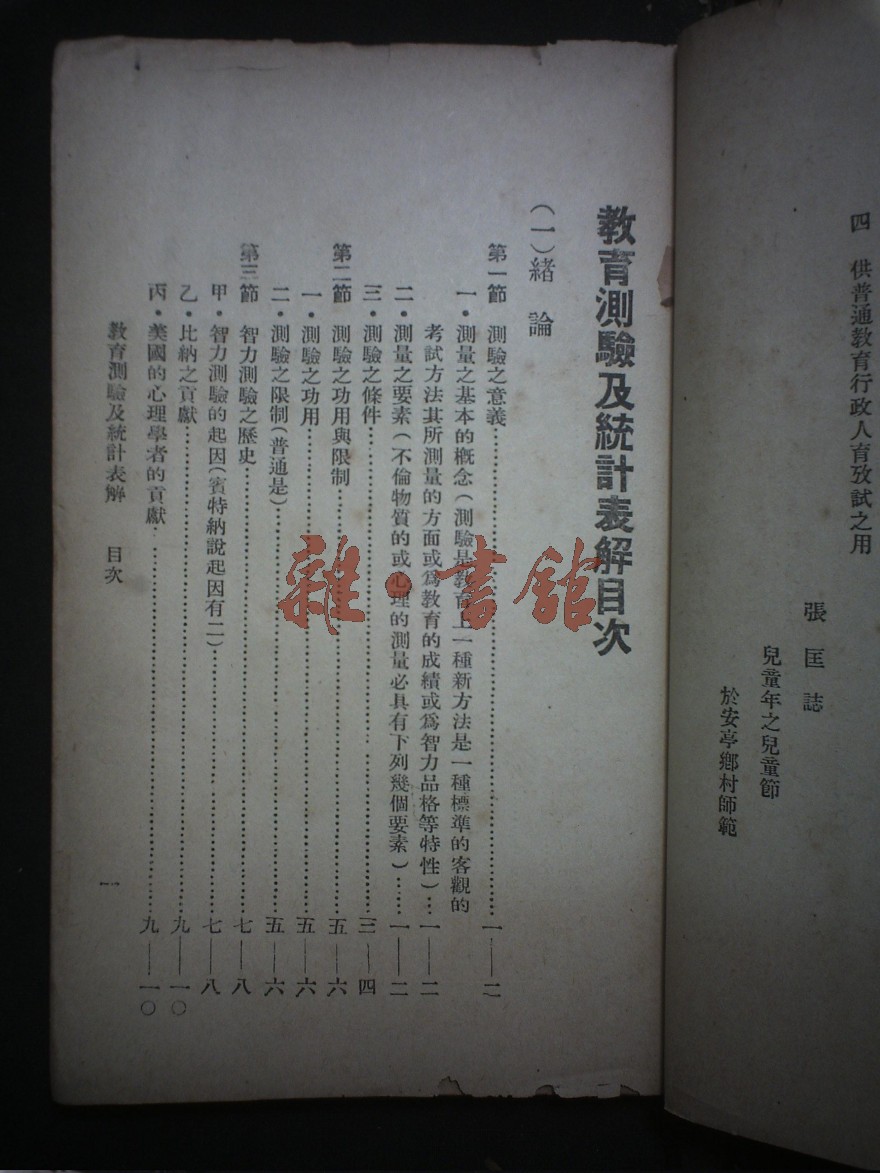 四　供普通教育行政人育攷試之用
張匡誌
兒童年之兒童節
於安亭鄉村師範
教育測驗及統計表解目次
(一)緒論
第一節　測驗之意義……一—二
一．測量之基本的概念(測驗是教育上一種新方法是一種標準的客觀的
考試方法其所測量的方面或爲教育的成績或爲智力品格等特性)…一—二
二．測量之要素(不倫物質的或心理的測量必具有下列幾個要素)……一—二
三．測驗之條件……三—四
第二節　測驗之功用與限制……五—六
一．測驗之功用……五—六
二．測驗之限制(普通是)……五—六
第三節　智力測驗之歷史……七—八
甲．智力測驗的起因(賓特納說起因有二)……七—八
乙．比納之貢獻……九—一〇
丙．美國的心理學者的貢獻……九—一〇
教育測驗及統計表解　目次
一
雜·書館